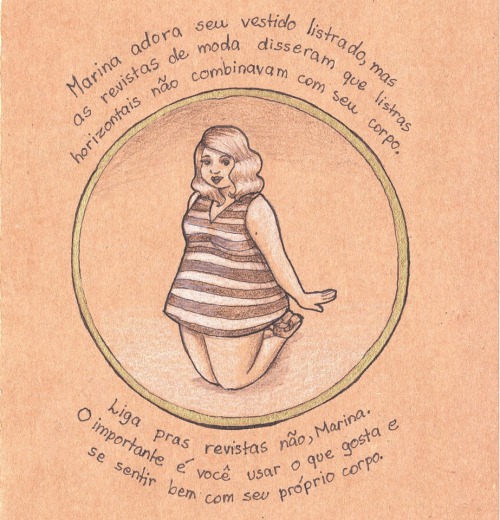 Marina adora seu vestido listrado, mas
as revistas de moda disseram que listras
horizontais não combinavam com seu corpo.
Liga pras revistas não, Marina.
O importante é você usar o que gosta e
se sentir bem com seu próprio corpo.